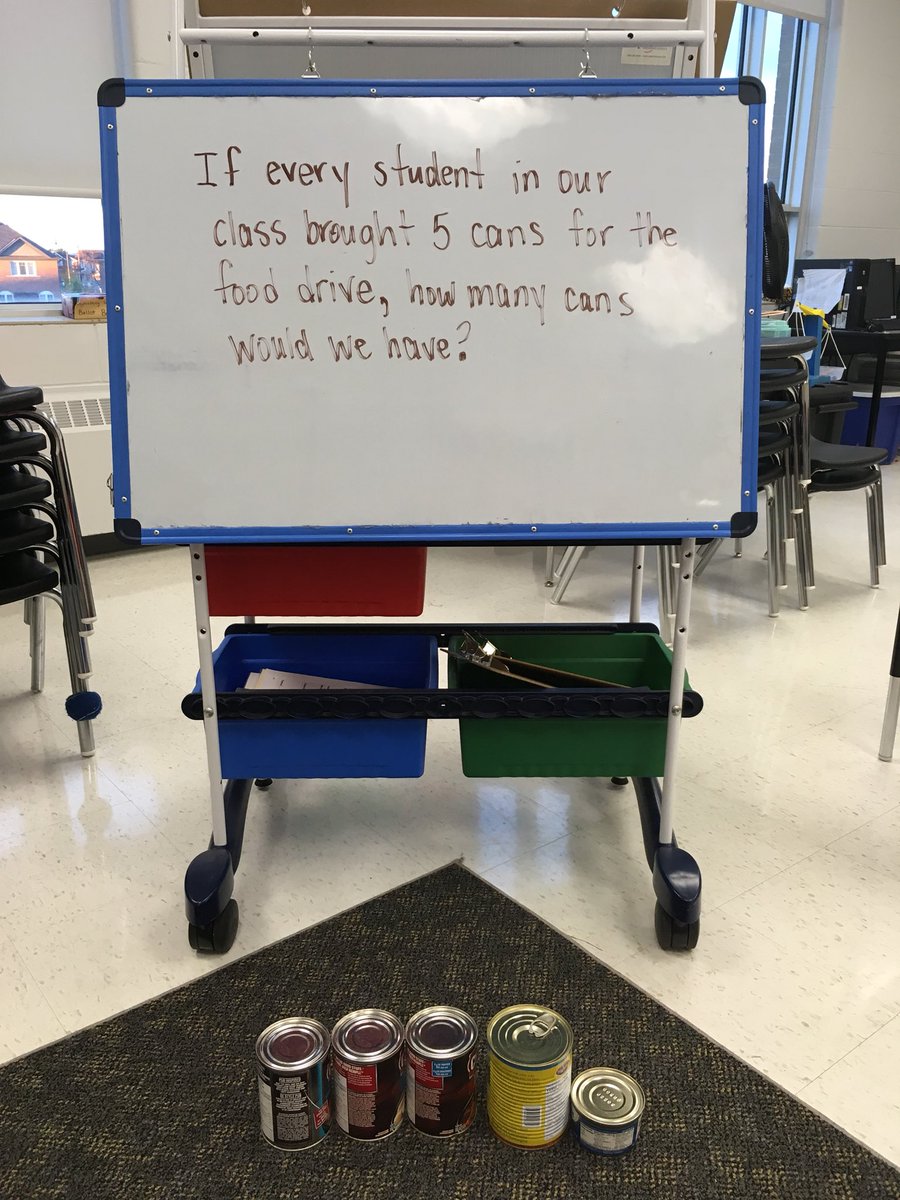 If every student in our
class brought 5 cans for the
food drive, how many cans
would we have?